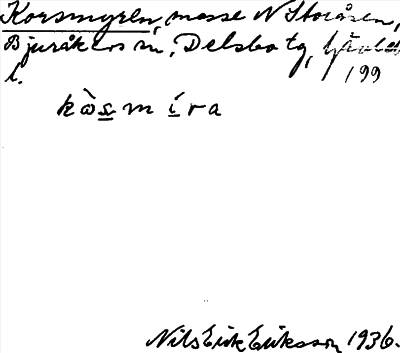 Korsmyren, mosse N Storåsen,
Bjuråkers sn, Delsbo tg, Gävleb
l. 199
kò̀s̲mí̲ra
Nils Erik Eriksson 1936.